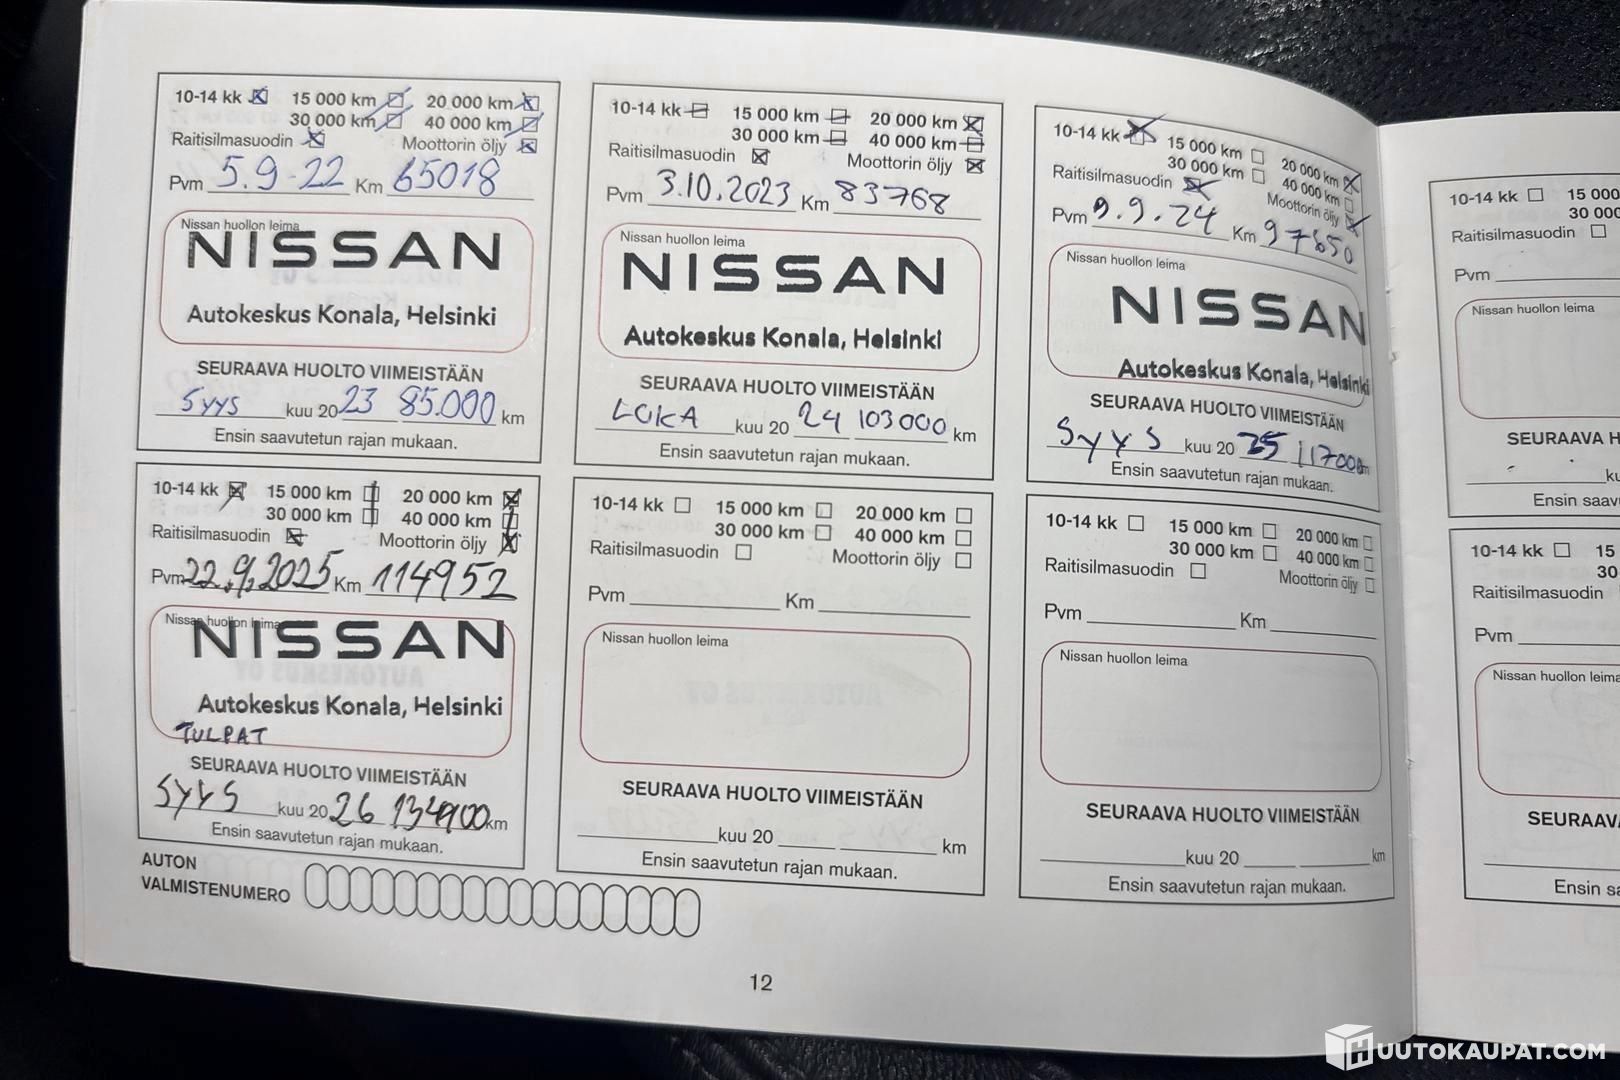 10-14 kk 15 000 km 20 000 km
30 000 km 40 000 km
Raitisilmasuodin Moottorin öljy
Pvm 5.9-22 Km 65018
Nissan huollon leima
NISSAN
Autokeskus Konala, Helsinki
SEURAAVA HUOLTO VIIMEISTÄÄN
Syys kuu 20 23 85.000 km
Ensin saavutetun rajan mukaan.
10-14 kk 15 000 km 20 000 km
30 000 km 40 000 km
Raitisilmasuodin Moottorin öljy
Pvm 3.10.2023 Km 83768
Nissan huollon leima
NISSAN
Autokeskus Konala, Helsinki
SEURAAVA HUOLTO VIIMEISTÄÄN
LOKA kuu 20 24 103000 km
Ensin saavutetun rajan mukaan.
10-14 kk 15 000 km 20 000 km
30 000 km 40 000 km
Raitisilmasuodin Moottorin öljy
Pvm 9.9.24 Km 97650
Nissan huollon leima
NISSAN
Autokeskus Konala, Helsinki
SEURAAVA HUOLTO VIIMEISTÄÄN
Syys kuu 20 25 117000 km
Ensin saavutetun rajan mukaan.
10-14 kk 15 000 km 20 000 km
30 000 km 40 000 km
Raitisilmasuodin Moottorin öljy
Pvm 22.9.2025 Km 114952
Nissan huollon leima
NISSAN
Autokeskus Konala, Helsinki
TULPAT
SEURAAVA HUOLTO VIIMEISTÄÄN
SYYS kuu 20 26 134900 km
Ensin saavutetun rajan mukaan.
10-14 kk 15 000 km 20 000 km
30 000 km 40 000 km
Raitisilmasuodin Moottorin öljy
Pvm Km
Nissan huollon leima
SEURAAVA HUOLTO VIIMEISTÄÄN
kuu 20 km
Ensin saavutetun rajan mukaan.
10-14 kk 15 000 km 20 000 km
30 000 km 40 000 km
Raitisilmasuodin Moottorin öljy
Pvm Km
Nissan huollon leima
SEURAAVA HUOLTO VIIMEISTÄÄN
kuu 20 km
Ensin saavutetun rajan mukaan.
AUTON
VALMISTENUMERO
12
10-14 kk 15 000
30 000
Raitisilmasuodin
Pvm
Nissan huollon leima
SEURAAVA H
ku
Ensin saav
10-14 kk 15
30
Raitisilmasuodin
Pvm
Nissan huollon leima
SEURAAVA
Ensin sa
HUUTOKAUPAT.COM